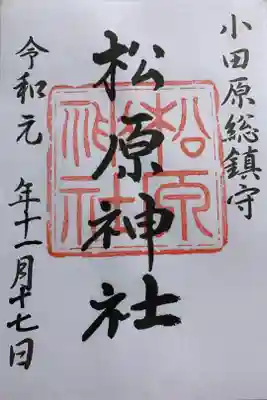 小田原総鎮守
松原神社
松原
神社
令和元年十一月十七日